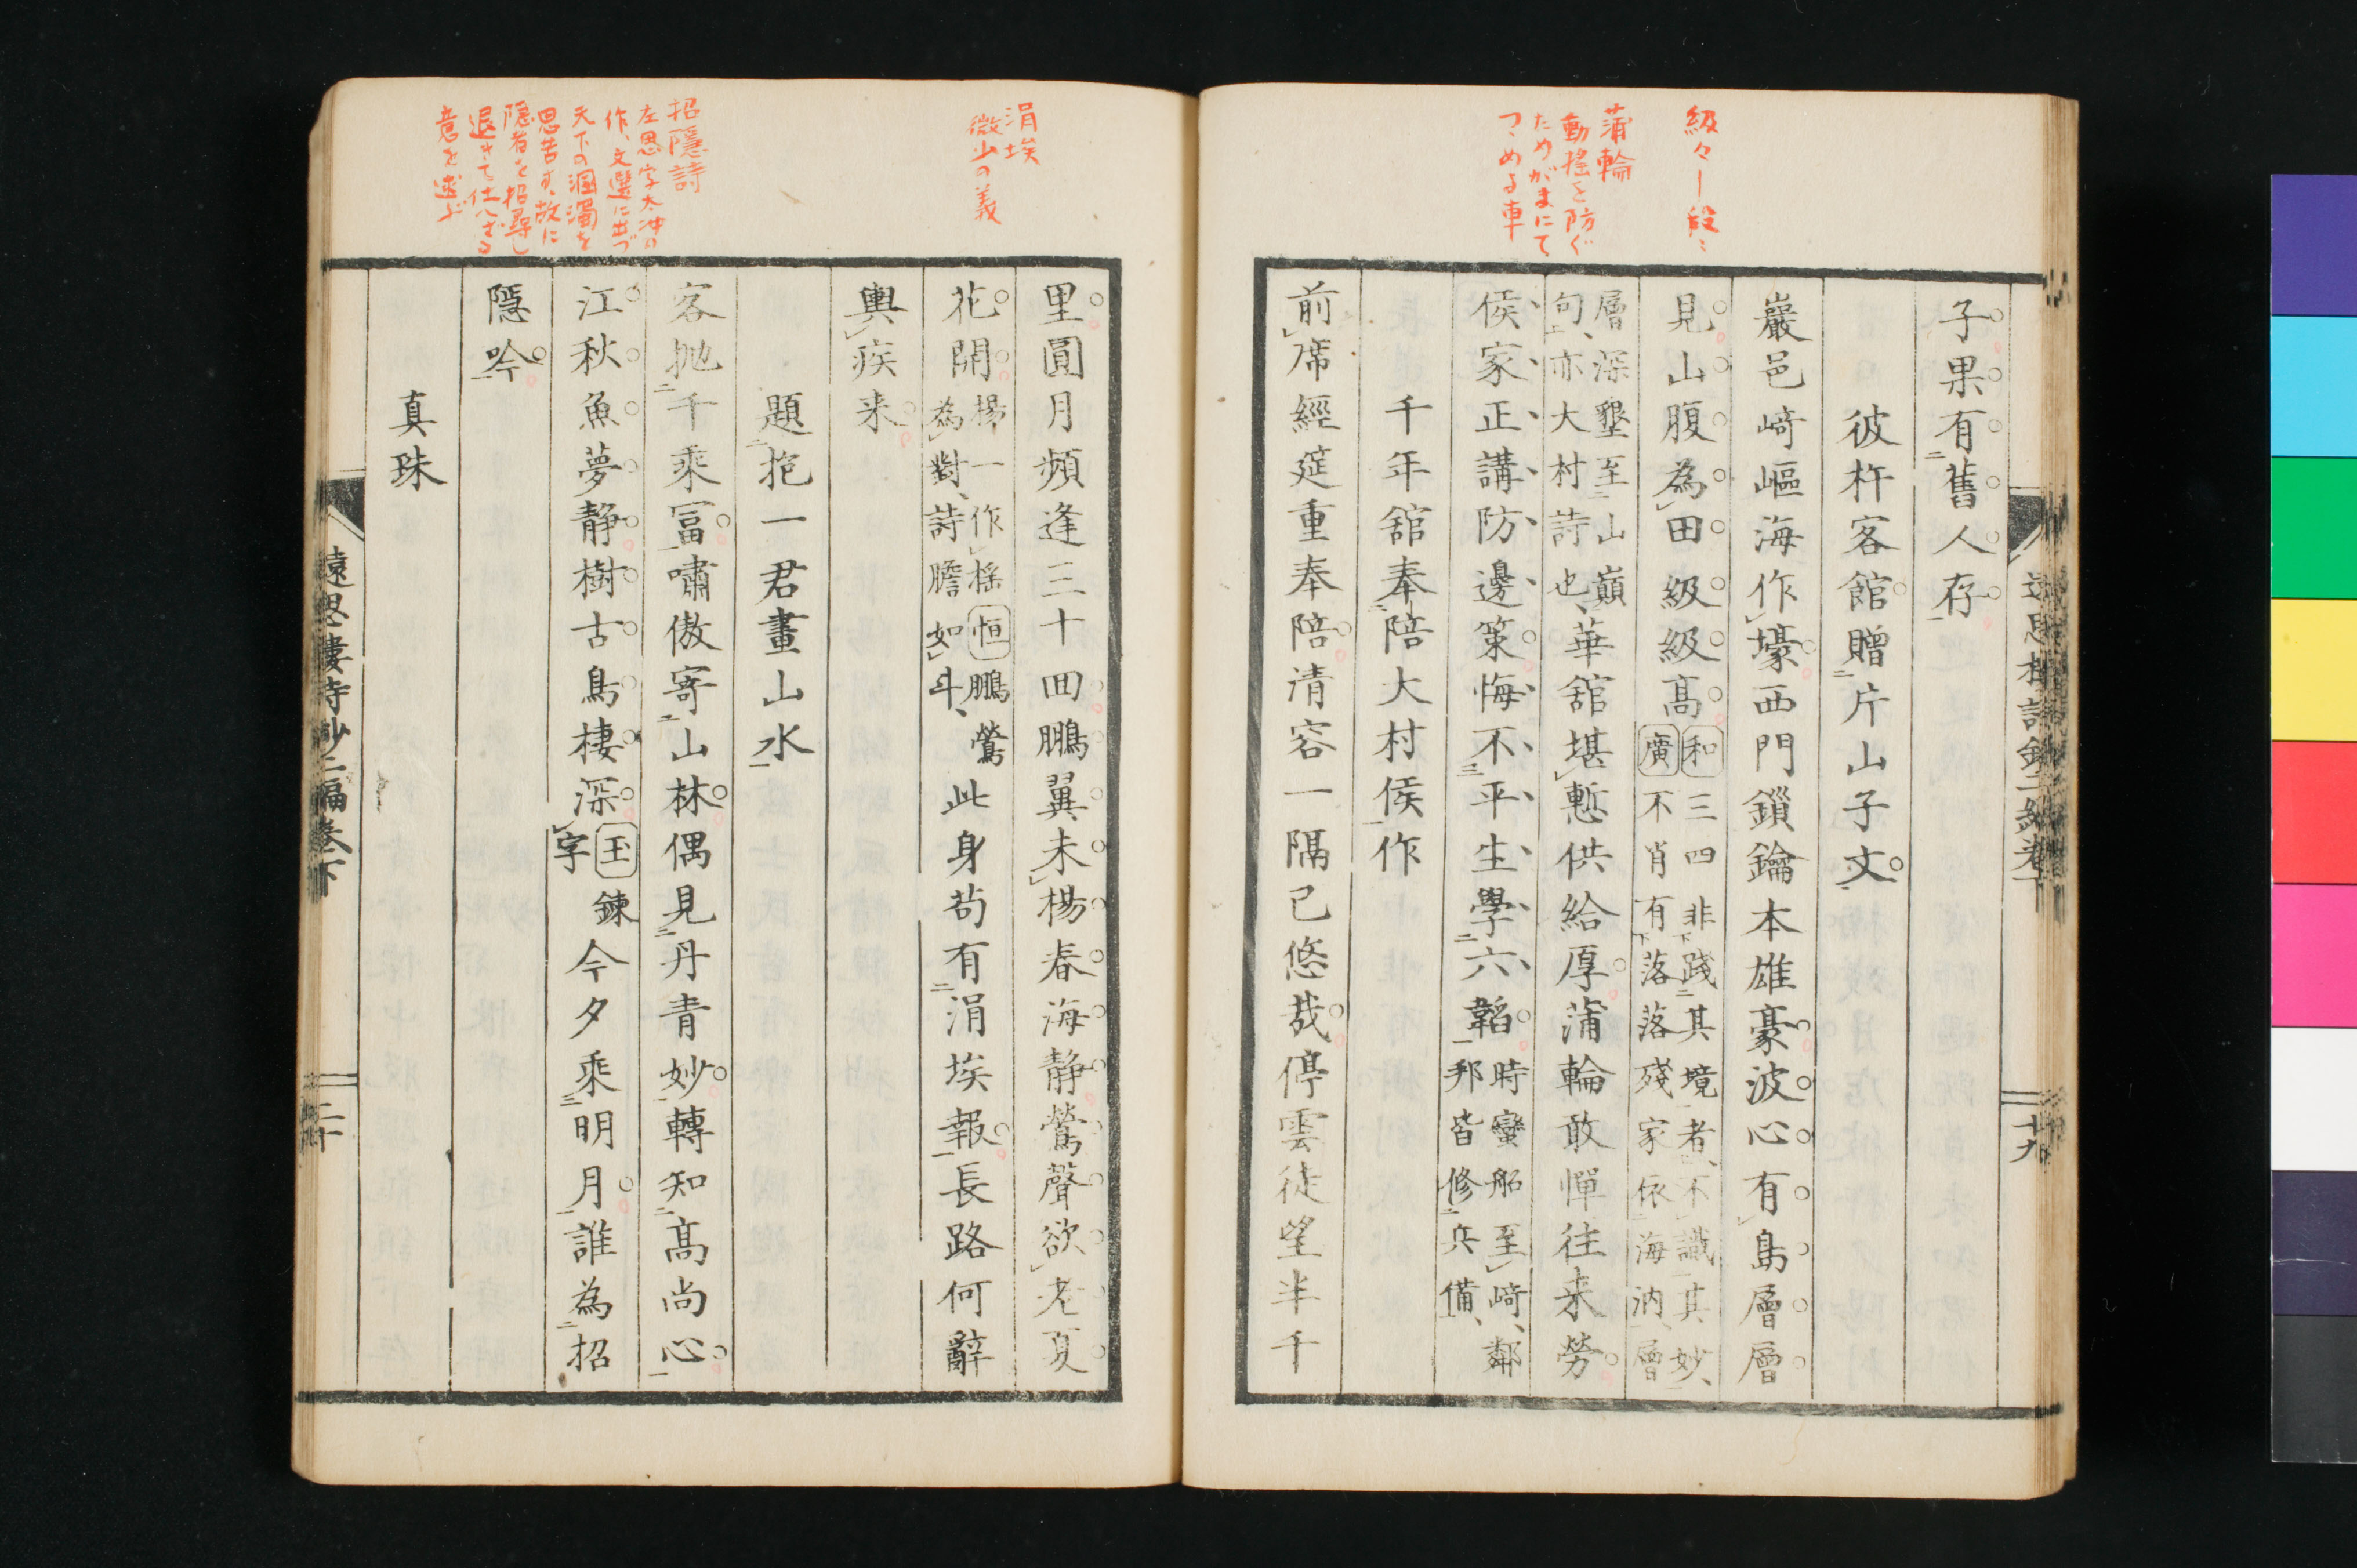 級々ー段〻
蒲輪
動揺を防ぐ
ためがまにて
つゝめる車
子果有舊人存
彼杵客館贈片山子文
巖邑﨑嶇海作壕西門鎖鑰本雄豪波心有島層層
見山腹為田級級髙
和三四非踐其境者、不識其妙、
廣不肖有落落殘家依海汭、層
層深墾至山巓
句、亦大村詩也、
華舘堪慙供給厚蒲輪敢憚往来勞
侯家正講防邊策悔不平生學六韜
時蠻舶至﨑、鄰
邦皆修兵備、
千年舘奉陪大村侯作
前席經筵重奉陪清容一隔已悠哉停雲徒望半千
遠思樓詩鈔二編卷下
十九
涓埃
微少の義
招隱詩
左思字太冲の
作、文選に出づ
天下の溷濁を
思苦す、故に
隠者を招尋し
退きて仕へざる
意を述ぶ
里圓月頻逢三十回鵬翼未楊春海静鶯聲欲老夏
花開
楊一作揺恒鵬鶯
為對、詩膽如斗、
此身苟有涓埃報長路何辭
輿疾来
題抱一君畫山水
客抛千乘冨嘯傲寄山林偶見丹青妙轉知髙尚心
江秋魚夢静樹古鳥棲深
玉鍊
字
今夕乘明月誰為招
隱吟
真珠
遠思樓詩鈔二編卷下
二十